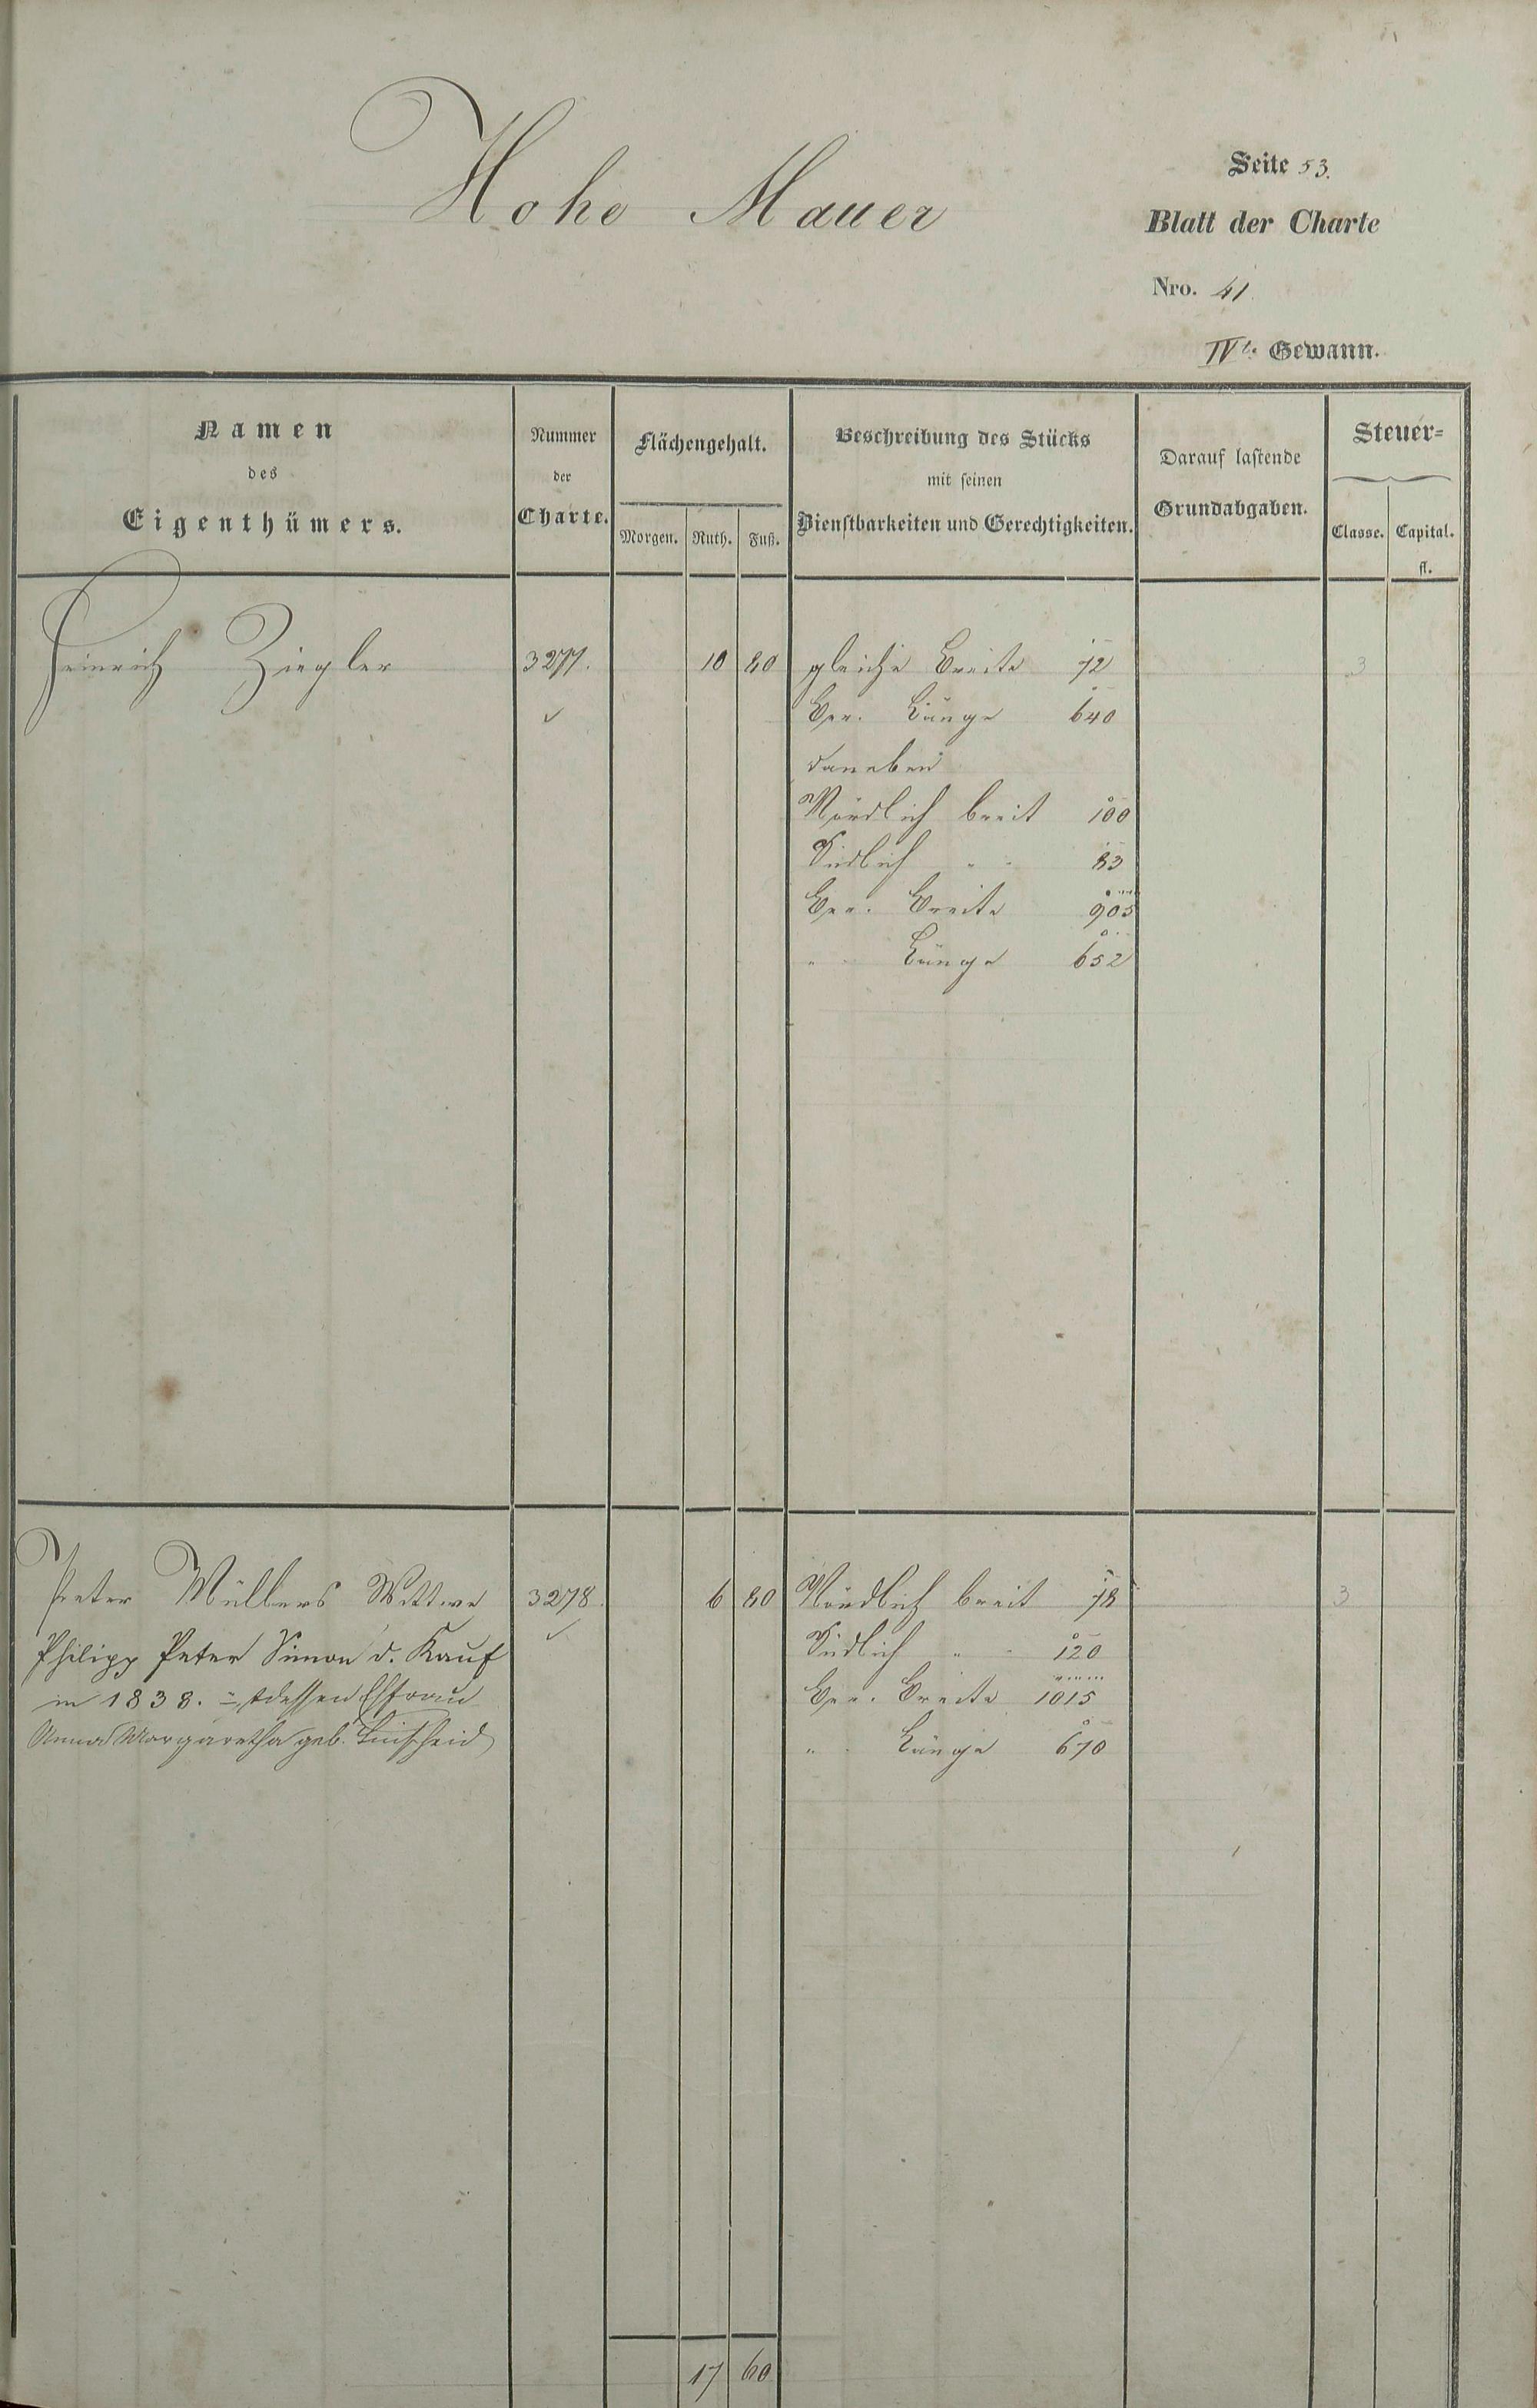 Hohe Mauer
Seite 53.
Blatt der Charte
Nro. 41
IVte Gewann.
Namen
des
Eigenthümers.
Nummer
der
Charte.
Flächengehalt.
Morgen. Ruth. Fuß.
Beschreibung des Stücks
mit seinen
Dienstbarkeiten und Gerechtigkeiten.
Darauf lastende
Grundabgaben.
Steuer=
Classe. Capital.
fl.
Heinrich Ziegler 3277. 10 80 gleiche Breite 72 3
Ber. Länge 640
daneben
Nördlich breit 100
Südlich " " 83
Ber. Breite 905
" Länge 652
Peter Müllers Wittwe 3278. 6 80 Nördlich breit 78 3
Philipp Peter Simon d. Kauf Südlich " " 120
in 1838. dessen Ehfrau Ber. Breite 1015
Anna Margaretha geb. " Länge 670
17 60